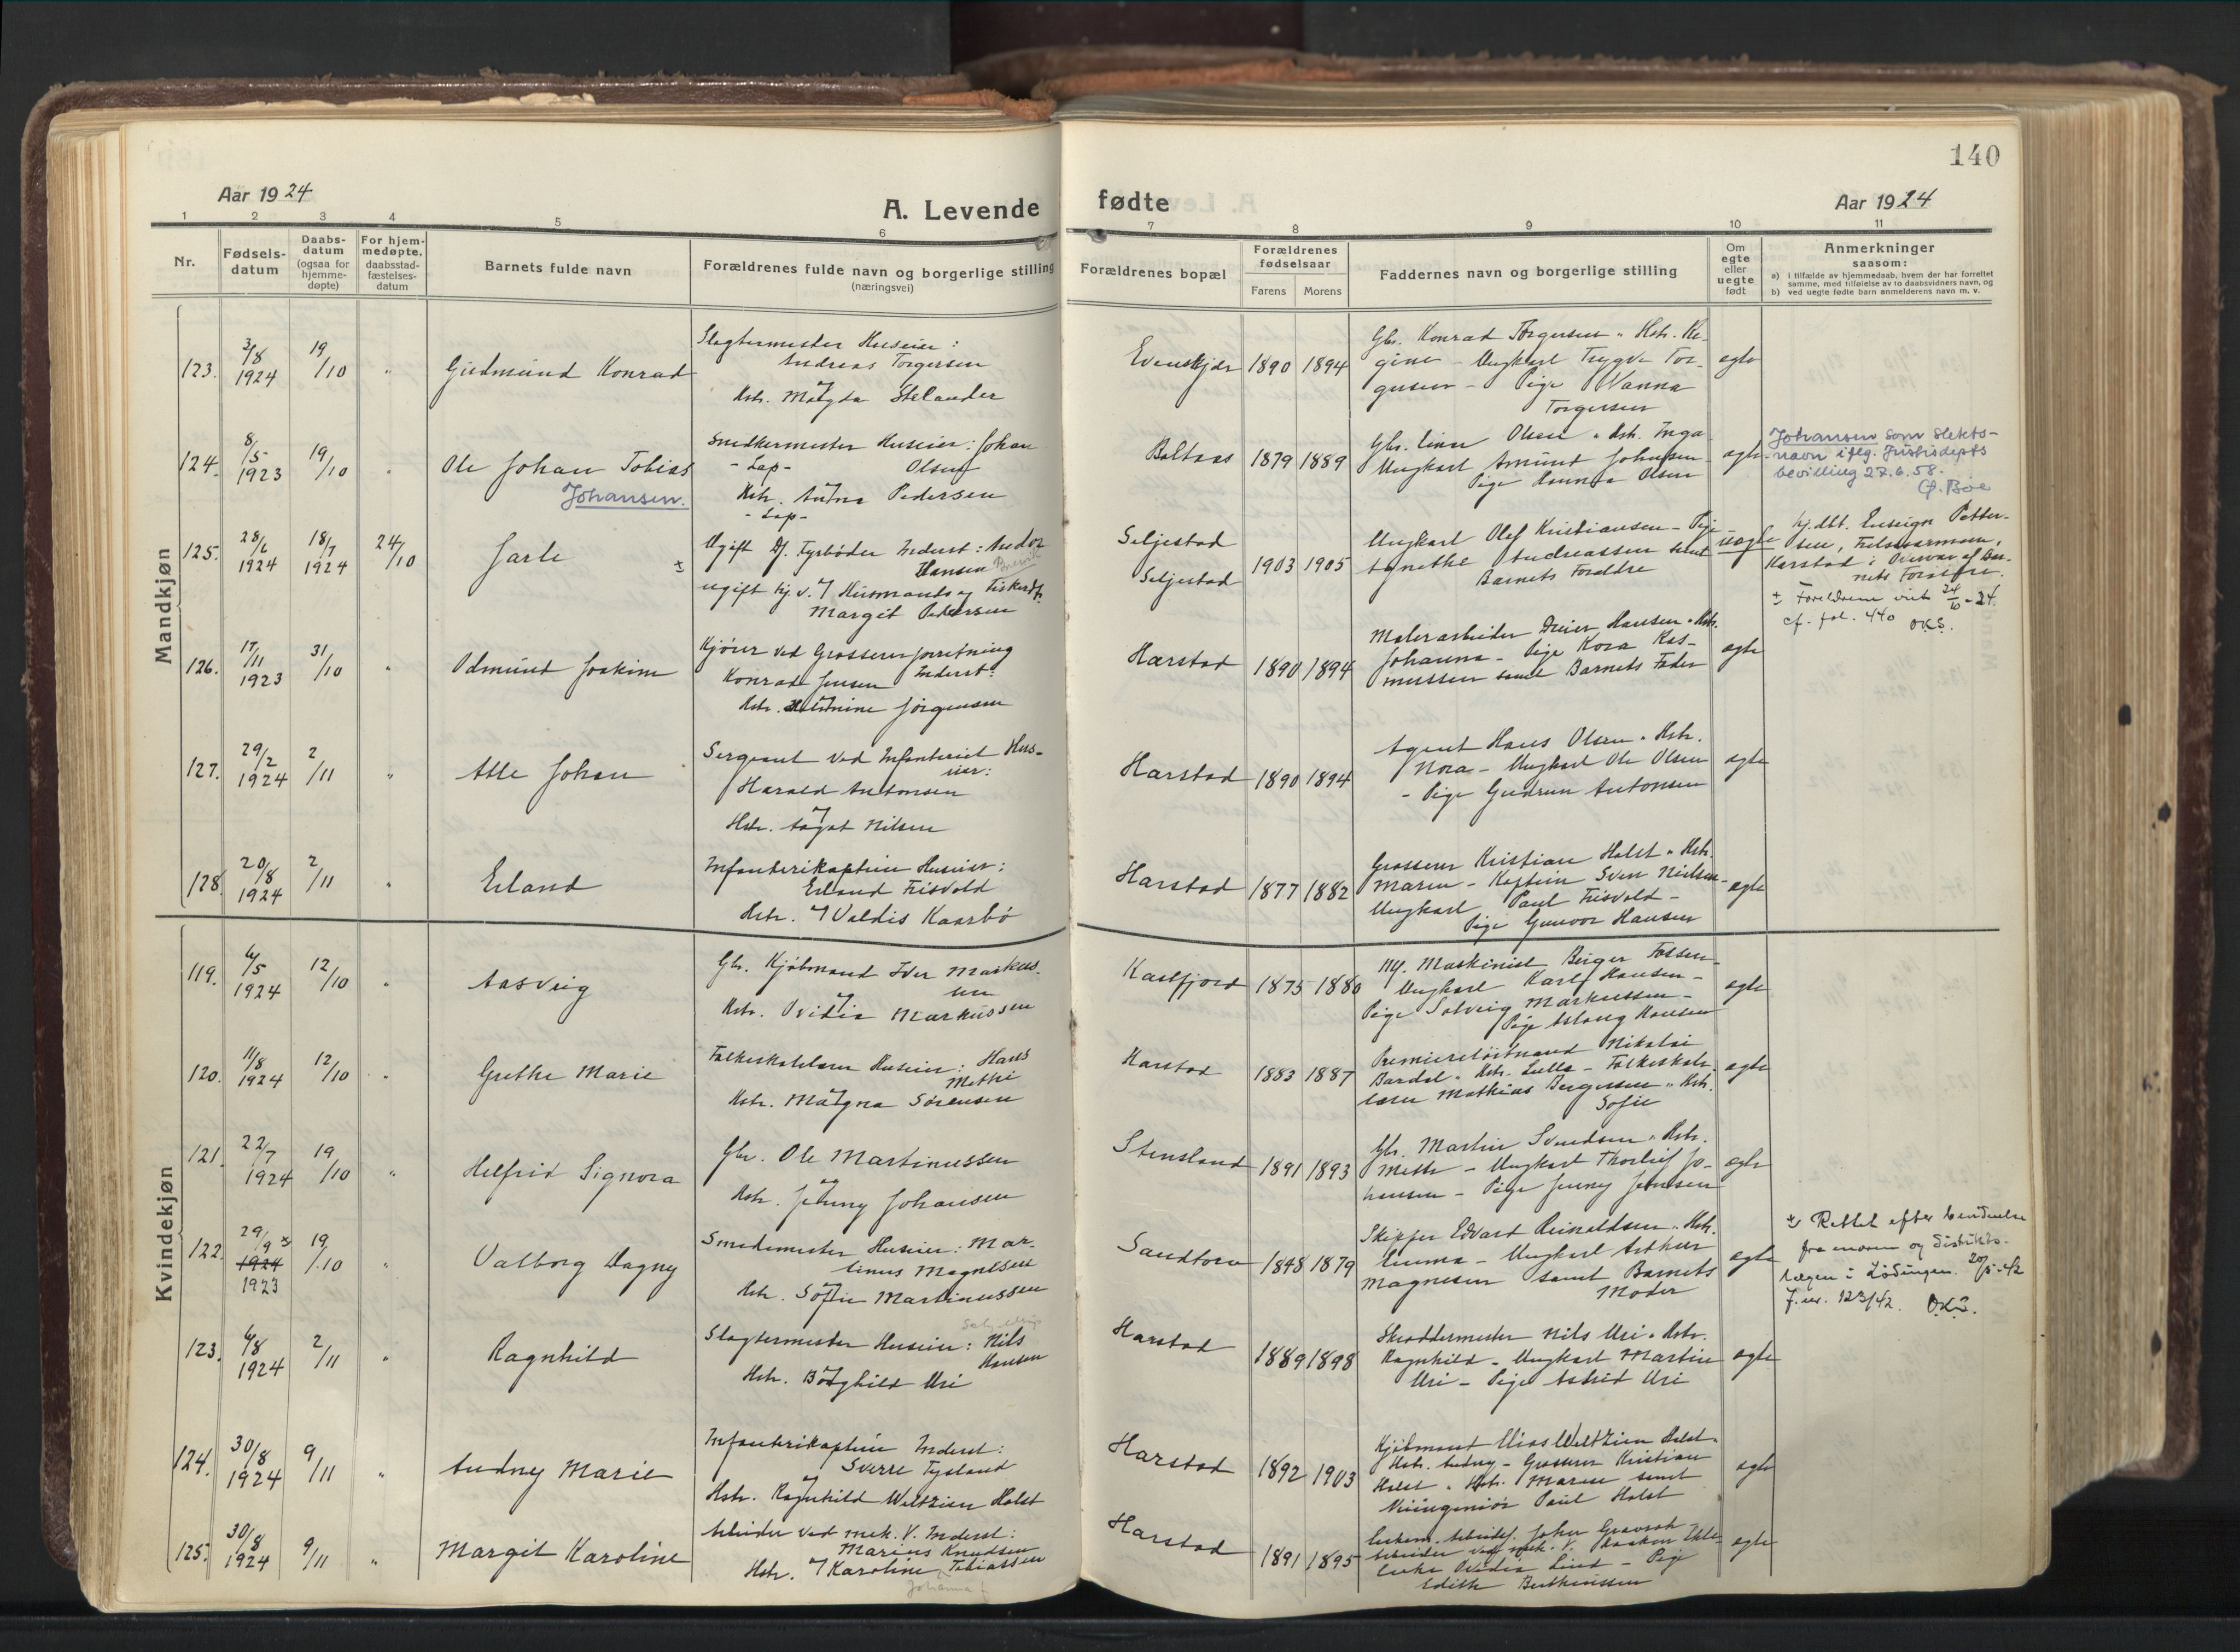 140
Aar 1924
A. Levende
fødte
Aar 1924
1 2 3 4 5 6 7 8 9 10 11
Nr.
Fødsels-
datum
Daabs-
datum
(ogsaa for
hjemme-
døpte)
For hjem-
medøpte,
daabsstad-
fæstelses-
datum
Barnets fulde navn
Forældrenes fulde navn og borgerlige stilling
(næringsvei)
Forældrenes bopæl
Forældrenes
fødselsaar
Farens
Morens
Faddernes navn og borgerlige stilling
Om
egte
eller
uegte
født
Anmerkninger
saasom:
a) i tilfælde av hjemmedaab, hvem der har forrettet
samme, med tilføielse av to daabsvidners navn, og
b) ved uegte fødte barn anmelderens navn m. v.
Mandkjøn
123.
3/8
1924
19
/10
"
Gudmund Konrad
Slagtermester Huseier:
Andreas Torgersen
og
Hstr. Magda Stelander
Evenskjær
1890
1894
Gbr. Konrad Torgersen " Hstr. Re-
gine – Ungkarl Trygve Tor-
gersen – Pige Nanna
Torgersen
egte
124.
8/5
1923
19
/10
"
Ole Johan Tobias
Johansen.
Snedkermester Huseier: Johan
- Lap - Olsen
og
Hstr. Anna Pedersen
- Lap -
Boltaas
1879
1889
Olsen " Hstr. Inga
Ungkarl Amund Johansen
Pige Olsen
egte
Johansen som slekts-
navn iflg. Justisdepts
bevilling 27.6.58.
Bøe
125.
28/6
1924
18/7
1924
24
/10
Jarle
Ugift Df. Fyrbøder Inderst: Andor
Hansen
ugift hj. v. Husmands og Fiskerdt.
Margit Pedersen
Seljestad
Seljestad
1903
1905
Ungkarl Olef Kristiansen – Pige
Agnethe Andreassen samt
Barnets Forældre
uegte
hj.dbt. Ensign Petter-
sen, Frelsesarmeen,
Harstad i Overvær af Bar-
nets Forældre.
Foreldrene viet 24/10-24.
cf. fol. 440 O.K.S.
126.
17/11
1923
31
/10
"
Odmund Joakim
Kjører ved Grossererforretning
Konrad Jensen Inderst:
og
Hstr. Jørgensen
Harstad
1890
1894
Malerarbeider Hansen " Hstr.
Johanna – Pige Kora Ras-
mussen samt Barnets Fader
egte
127.
29/2
1924
2
/11
"
Atle Johan
Sergeant ved Infanteriet Hus-
eier:
Harald Antonsen
og
Hstr. Aagot Nilsen
Harstad
1890
1894
Agent Hans Olsen " Hstr.
Nora – Ungkarl Ole Olsen
– Pige Gudrun Antonsen
egte
128.
20/8
1924
2
/11
"
Erland
Infanterikaptein Huseier:
Erland Frisvold
Hstr. og Valdis Kaarbø
Harstad
1877
1882
Grosserer Kristian Holst " Hstr.
Maren – Kaptein Sven Nielsen –
Ungkarl Paul Frisvold –
Pige Gunvor Hansen
egte
Kvindekjøn
119.
4/5
1924
12
/10
"
Aasveig
Gbr. Kjøbmand Iver Markus-
sen
og
Hstr. Ovidia Markussen
Kasfjord
1875
1880
Maskinist Birger Fossen –
Ungkarl Karl Hansen –
Pige Solveig Markussen –
Pige Aslaug Hansen
egte
120.
11/8
1924
12
/10
"
Grethe Marie
Folkeskolelærer Huseier: Hans
Methi
og
Hstr. Magna Sørensen
Harstad
1883
1887
Premierløitnand Nikolai
Bardal " Hstr. Lulla – Folkeskole-
lærer Mathias Bergersen " Hstr.
Sofie
egte
121.
22/7
1924
19
/10
"
Helfrid Signora
Gbr. Ole Martinussen
og
Hstr. Jenny Johansen
Stensland
1891
1893
Gbr. Martin Svendsen " Hstr.
Meth – Ungkarl Thorleif Jo-
hansen – Pige Jenny Jensen
egte
122.
29/9
1924
1923
19
/10
"
Valborg Dagny
Smedemester Huseier: Mar-
tinus Magnesen
og
Hstr. Sofie Martinussen
Sandtorv
1848
1879
Skipper Edvard Reinaldsen " Hstr.
Emma – Ungkarl Arthur
Magnesen samt Barnets
Moder
egte
Rettet efter bevidnelse
fra moren og distrikts-
lægen i Lødingen. 20/5-42
J.nr. 123/42. O.K.S.
123.
4/8
1924
2
/11
"
Ragnhild
Slagtermester Huseier: Nils
Hansen
og
Hstr. Borghild Uri
Harstad
1889
1898
Skræddermester Nils Uri " Hstr.
Ragnhild – Ungkarl Martin
Uri – Pige Astrid Uri
egte
124.
30/8
1924
9
/11
"
Audny Marie
Infanterikaptein Inderst:
Sverre Tysland
og
Hstr. Ragnhild Weltzien Holst
Harstad
1892
1903
Kjøbmand Elias Weltzien Holst "
Hstr. Audny – Grosserer Kristian
Holst " Hstr. Maren samt
Paul Holst
egte
125.
30/8
1924
9
/11
"
Margit Karoline
Arbeider ved mek. V. Inderst:
Marius Knudsen
Hstr. og Karoline Tobiassen
Johanna
Harstad
1891
1895
John
Arbeider ved mek. V. Haakon
Ovidia Lind – Pige
Edith Berthinssen
egte